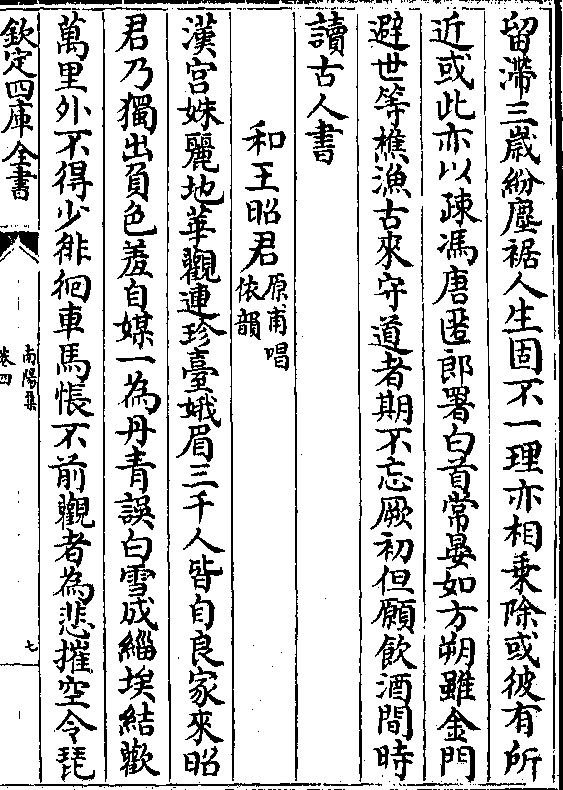 留滯三歲紛塵裾人生固不一理亦相乗除或彼有所
近或此亦以疎馮唐匿郎署白首常晏如方朔雖金門
避世等樵漁古來守道者期不忘厥初但願飲酒間時
讀古人書
和王昭君原甫唱依韻
漢宫姝麗地華觀連珍臺娥眉三千人皆自良家來昭
君乃獨出負色羞自媒一為丹青誤白雪成緇埃結歡
萬里外不得少徘徊車馬悵不前觀者為悲摧空令琵
欽定四庫全書
南陽集
卷四
七